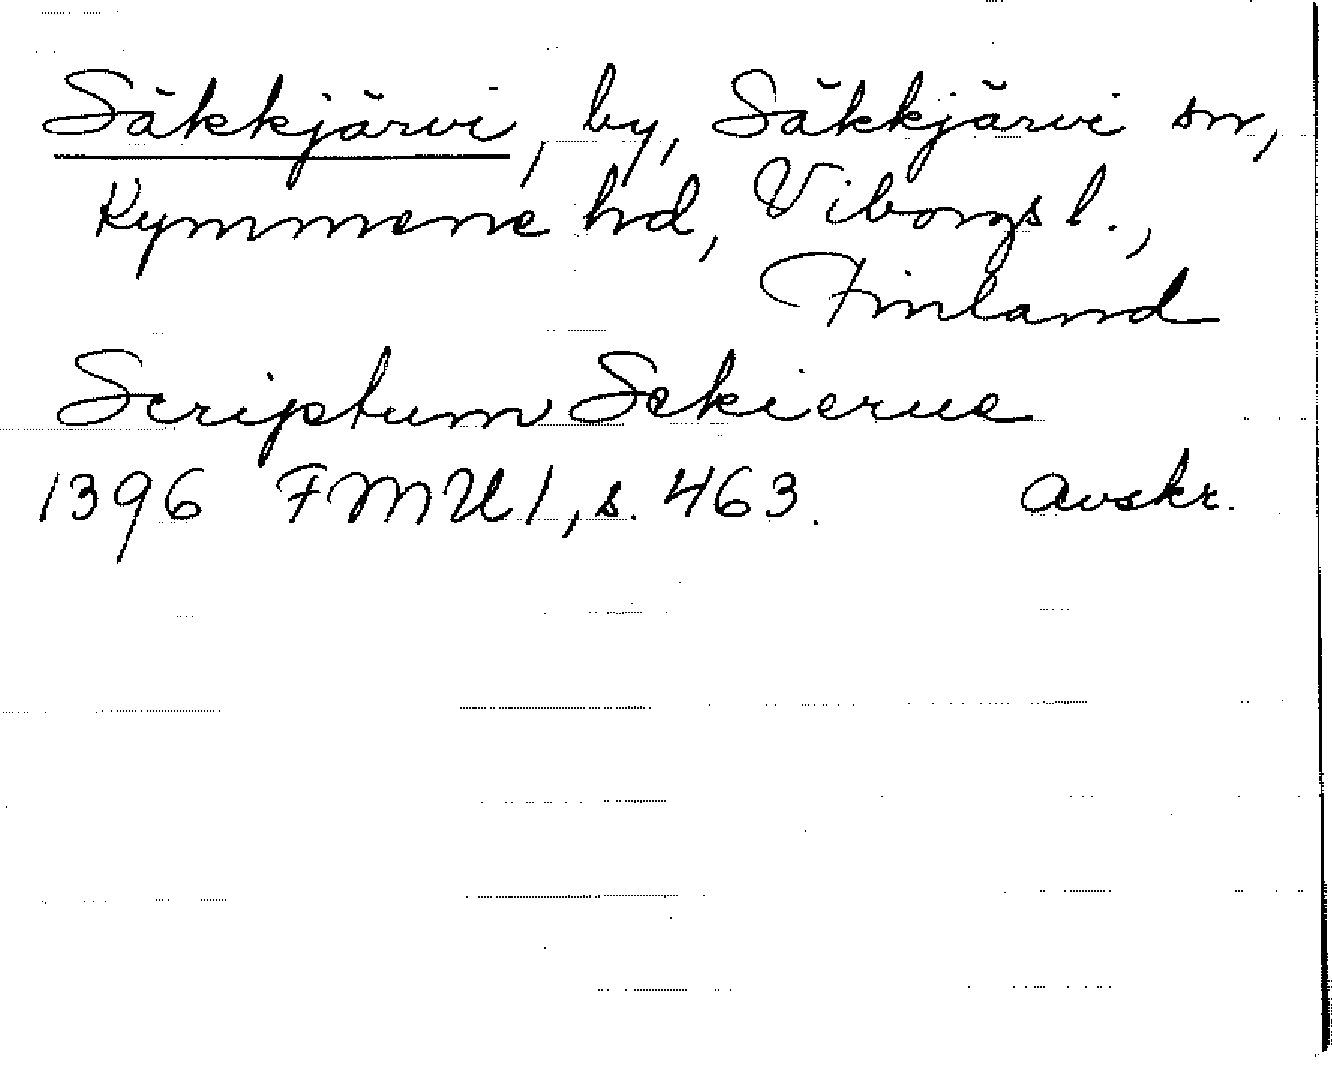 Säkkjärvi, by, Säkkjärvi sn,
Kymmene hd, Viborgs l.,
Finland
Scriptum Sekierue
1396 FMU 1, s. 463. avskr.